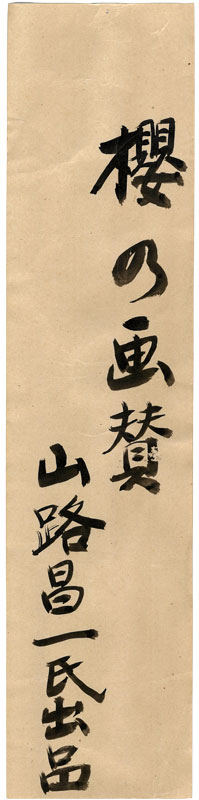 櫻の画賛
山路昌一氏出品